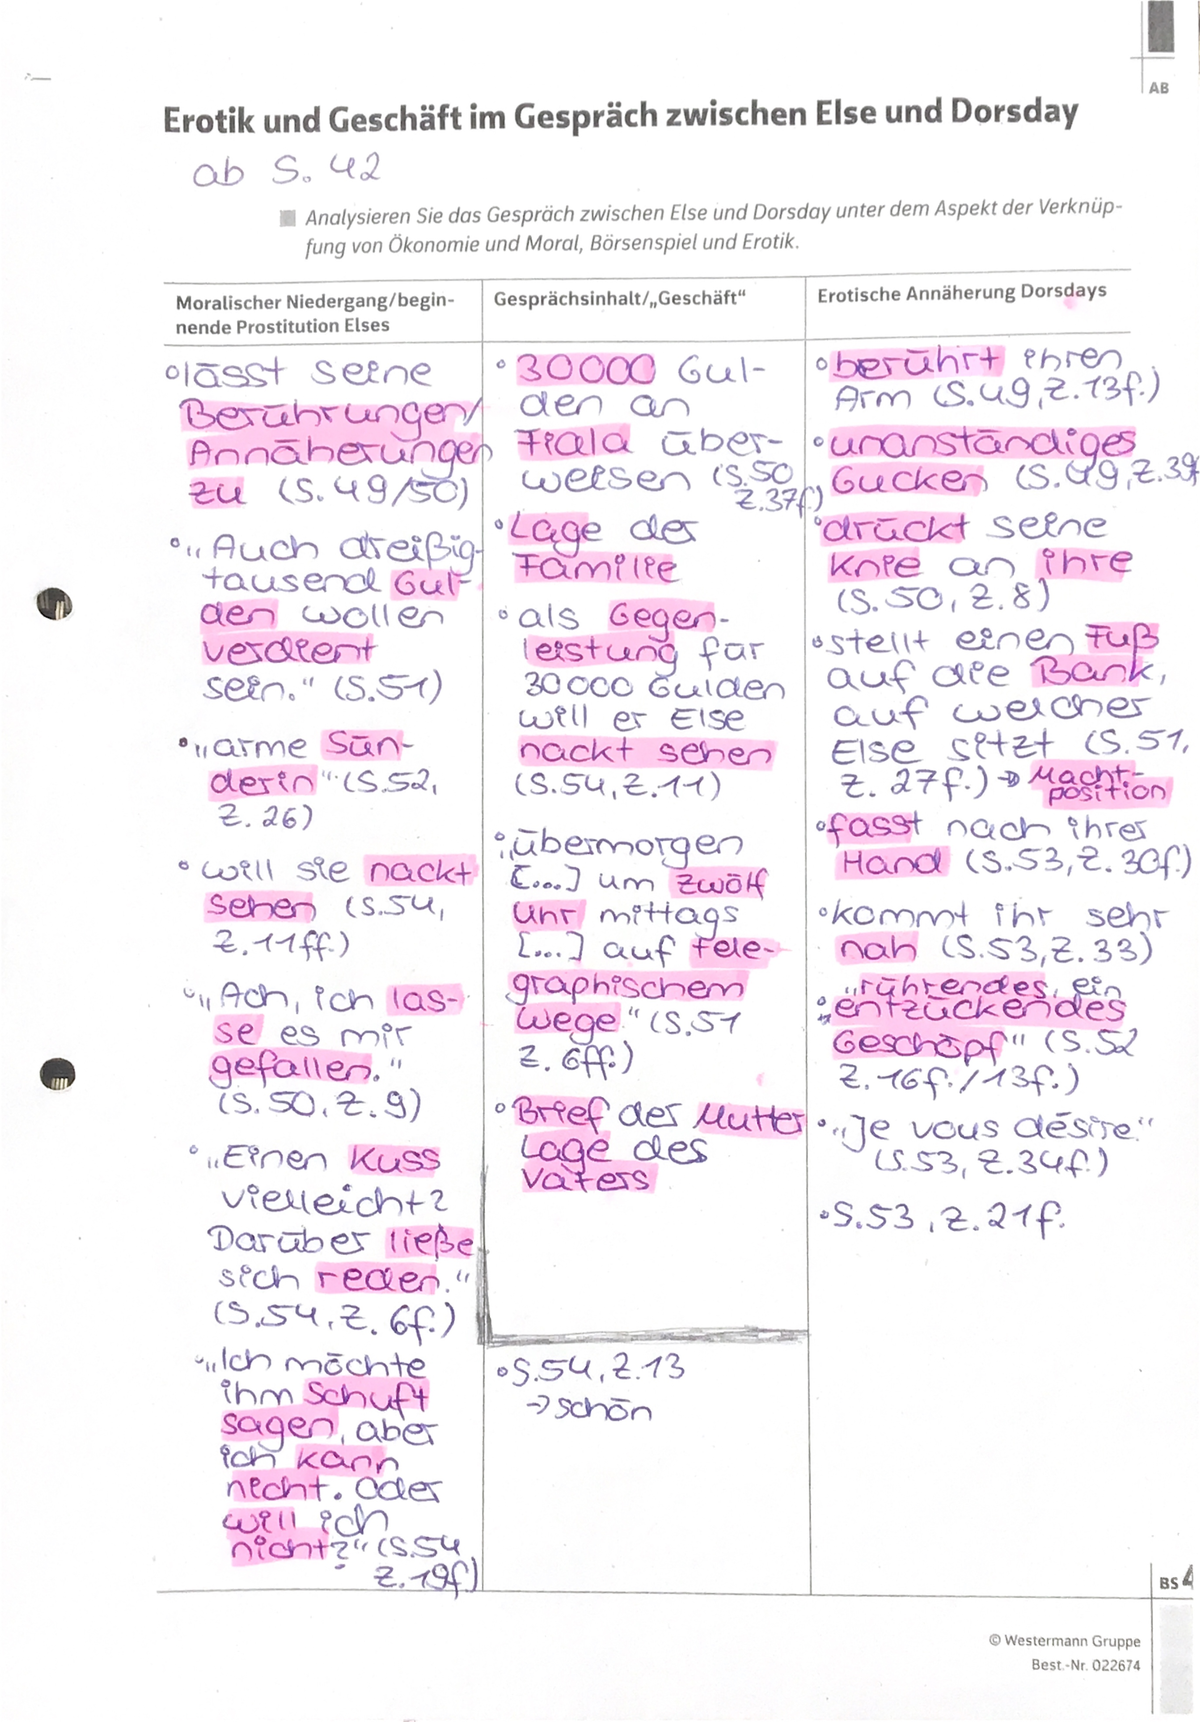 AB
Erotik und Geschäft im Gespräch zwischen Else und Dorsday
ab S. 42
Analysieren Sie das Gespräch zwischen Else und Dorsday unter dem Aspekt der Verknüp-
fung von Ökonomie und Moral, Börsenspiel und Erotik.
Moralischer Niedergang/begin-
nende Prostitution Elses
lässt seine
Berührungen/
Annäherungen
zu (S. 49/50)
„Auch dreißig-
tausend Gul-
den wollen
verdient
sein." (S.51)
„arme Sün-
derin" (S.52,
Z. 26)
will sie nackt
sehen (S.54,
Z.11ff.)
„Ach, ich las-
se es mir
gefallen."
(S. 50, Z. 9)
„Einen Kuss
vielleicht?
Darüber ließe
sich reden."
(S.54, Z. 6f.)
„Ich möchte
ihm Schuft
sagen, aber
ich kann
nicht. Oder
will ich
nicht?" (S.54
Z. 19f)
Gesprächsinhalt/„Geschäft"
30000 Gul-
den an
Fiala über-
weisen (S.50
Z.37f.)
Lage der
Familie
als Gegen-
leistung für
30000 Gulden
will er Else
nackt sehen
(S.54, Z.11)
„übermorgen
[....] um zwölf
Uhr mittags
[....] auf tele-
graphischem
Wege." (S.51
Z. 6ff.)
Brief der Mutter
Lage des
Vaters
S.54, Z.13
→ schön
Erotische Annäherung Dorsdays
berührt ihren
Arm (S.49, Z.13f.)
unanständiges
Gucken (S.49, Z.39f
drückt seine
Knie an ihre
(S.50, Z.8)
stellt einen Fuß
auf die Bank,
auf welcher
Else sitzt (S.51,
Z. 27f.) → Macht-
position
fasst nach ihrer
Hand (S.53, Z. 30f.)
kommt ihr sehr
nah (S.53, Z. 33)
„rührendes, ein
entzückendes
Geschöpf" (S.52
Z. 16f. / 13f.)
„Je vous désire."
(S.53, Z.34f.)
S.53, Z.21f.
BS 4
© Westermann Gruppe
Best.-Nr. 022674